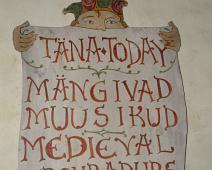 TÄNA·TODAY
MÄNGIVAD
MUUSIKUD
MEDIEVAL